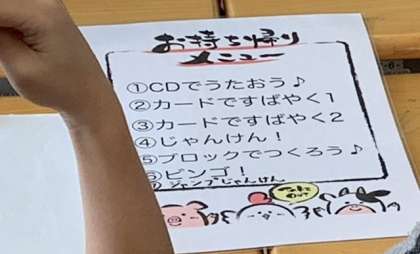 お持ち帰り
メニュー
①CDでうたおう♪
②カードですばやく1
③カードですばやく2
④じゃんけん!
⑤ブロックでつくろう♪
⑥ビンゴ!
⑦ジャンプじゃんけん